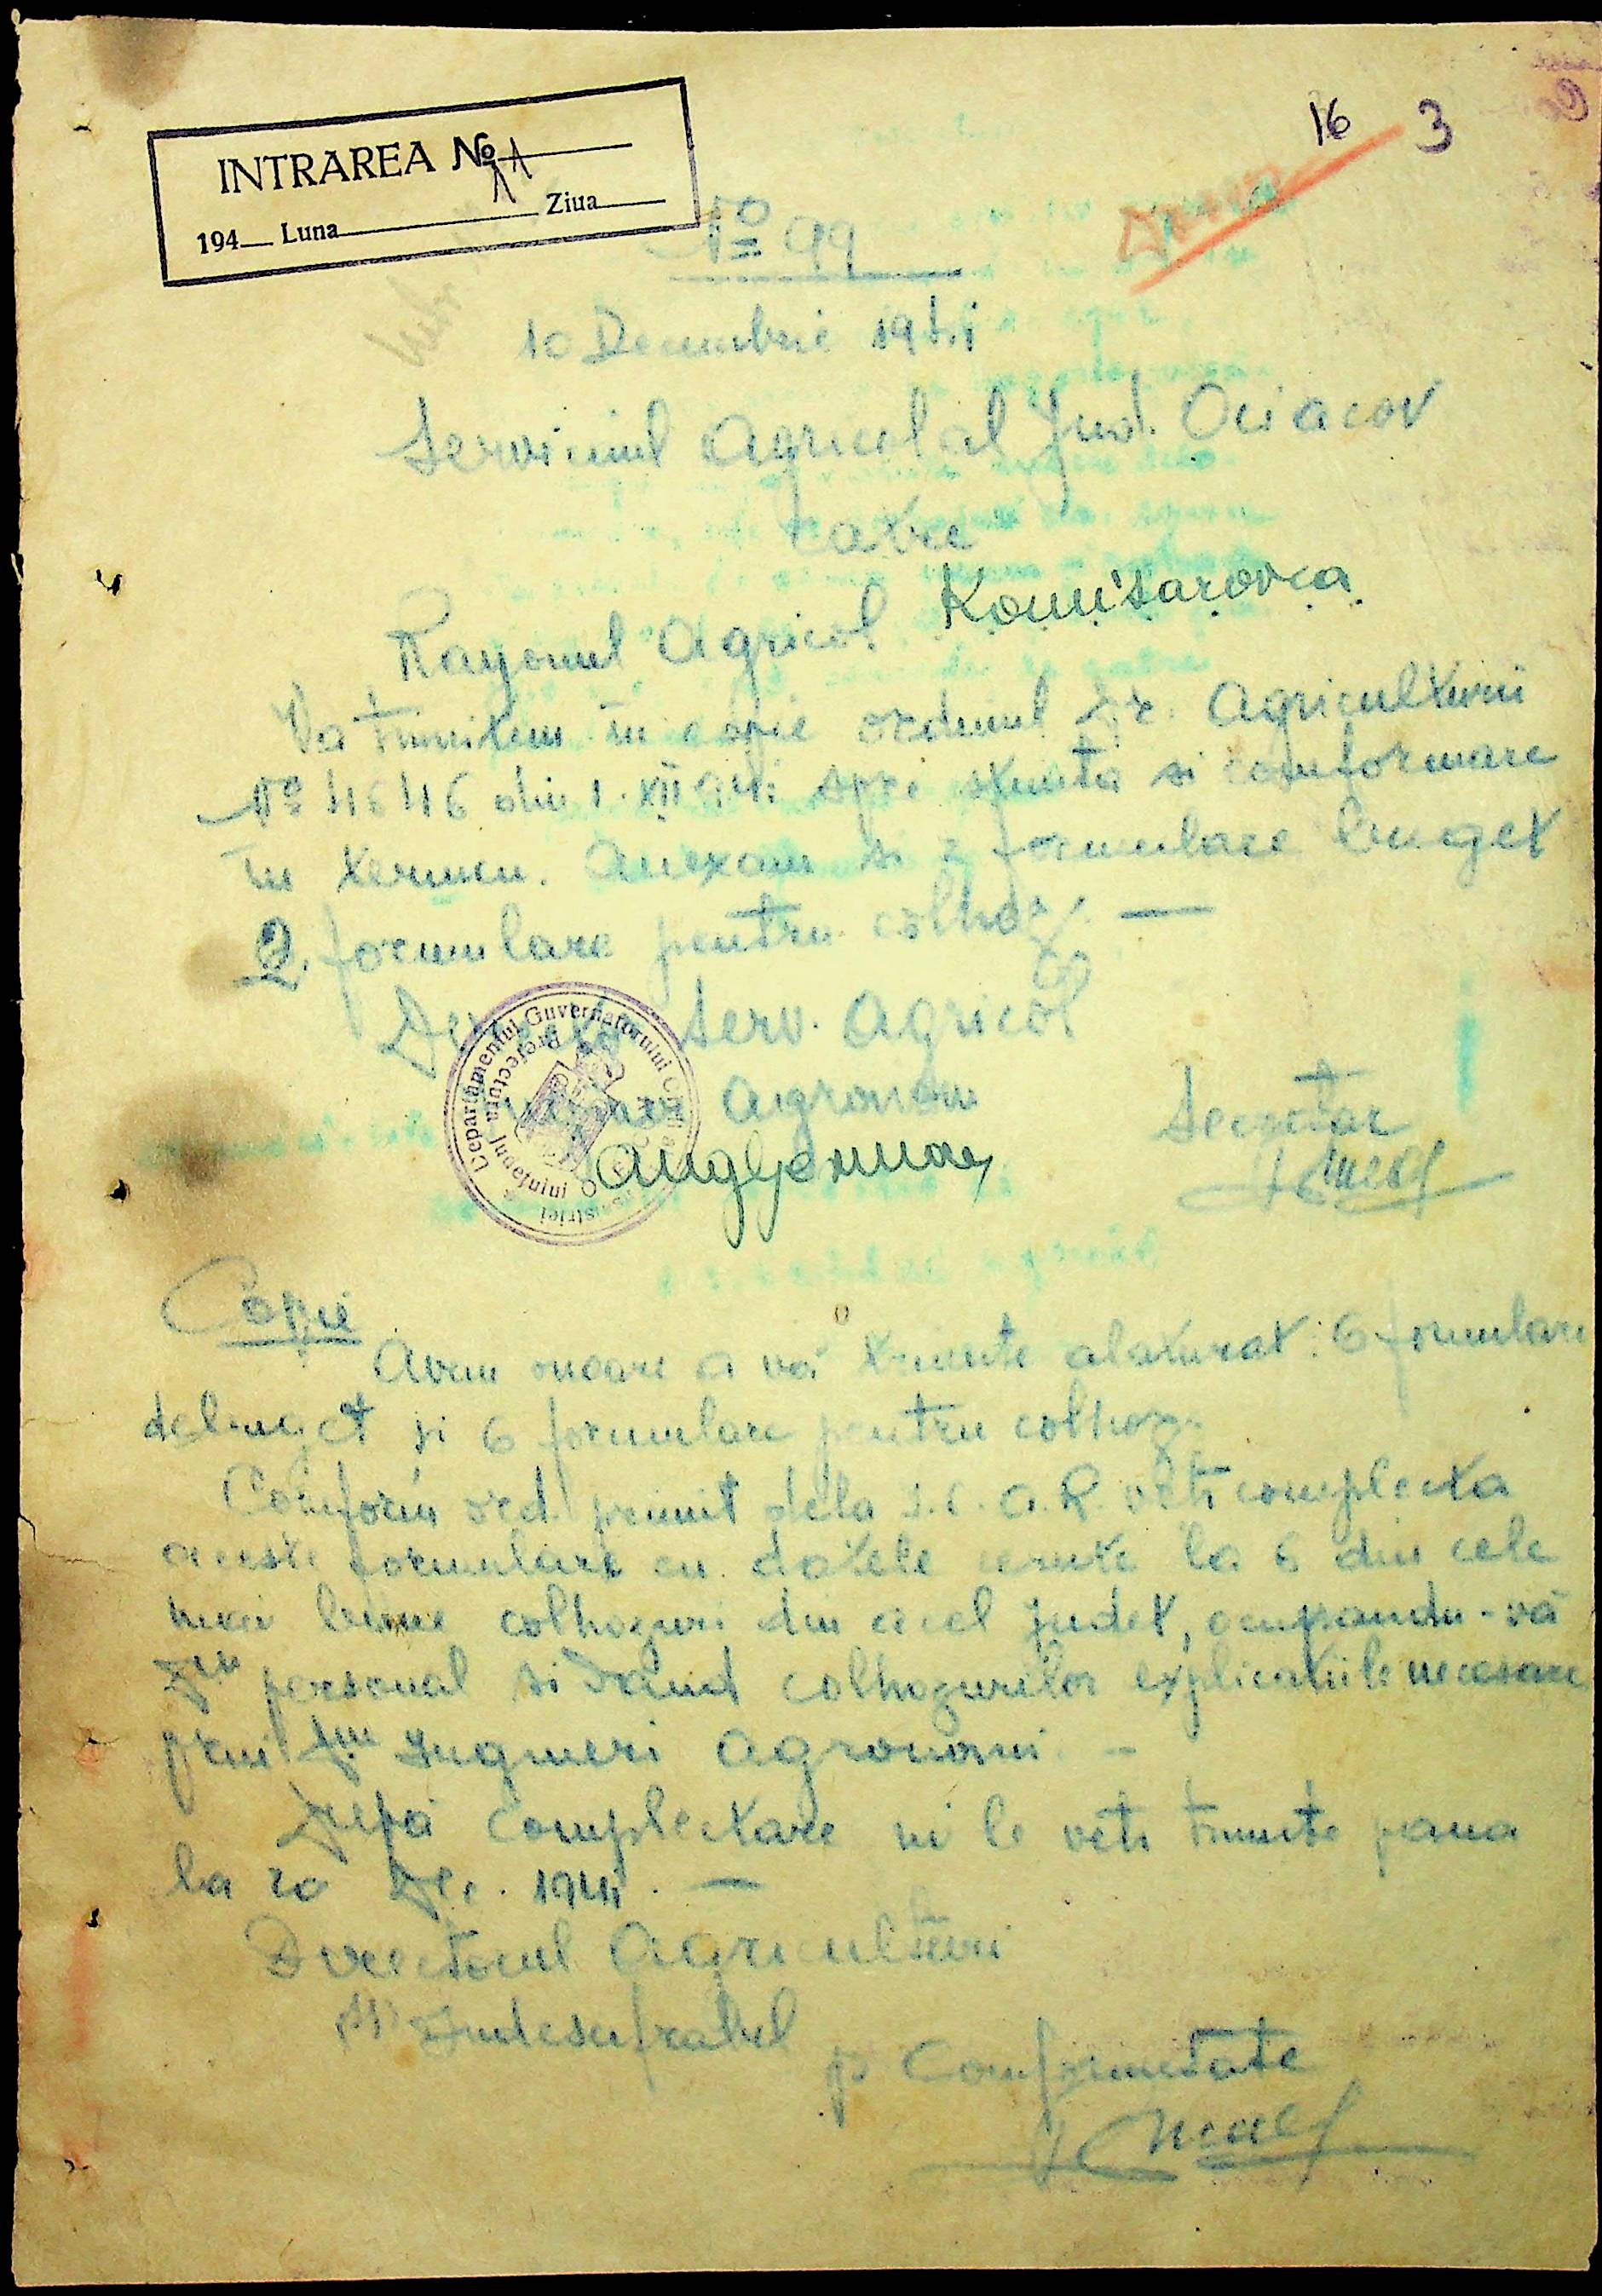 16 3
INTRAREA No 11
194 Luna Ziua
No 99
10 Decembrie 1941
Serviciul Agricol al Jud. Oceacov
catre
Rayonul Agricol Komisarovca
Va trimitem in copie ordinul Dir. Agriculturii
No din 1.XII 941 spre stiinta si comformare
in termen. Anexam si 2 formulare buget
2 formulare pentru colhoz. —
Serv. Agricol
Agronom
Secretar
Departamentul Guvernatorului
Prefectura Județului O
Copie
Avem onoare a vă trimite alaturat: 6 formulare
debuget si 6 formulare pentru colhoz.
Comform ord. primit dela I.C.A.R. veti complecta
aceste formulare cu datele cerute la 6 din cele
mai bune colhozuri din acel judet, ocupandu-vă
personal si dand colhozurilor explicatiile necesare
prin Ingineri Agronomi. —
După complectare ni le veti trimite pana
la 20 Dec. 1941. —
Directorul Agriculturii
ss Indescifrabil
p. Comformitate